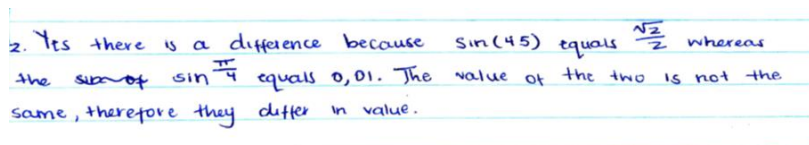 2. Yes there is a difference because sin(45) equals √2/2 whereas
the sin π/4 equals 0,01. The value of the two is not the
same, therefore they differ in value.